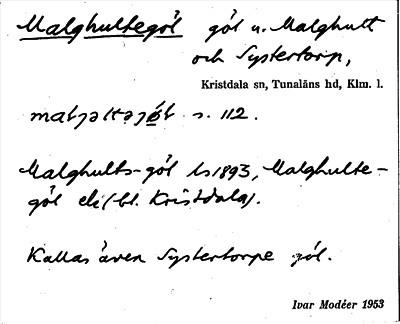 Malghultegöl göl u. Malghult
och Systertorp,
Kristdala sn, Tunaläns hd, Klm. l.
s. 112.
Malghults-göl ls 1893, Malghulte-
göl ek (bl. Kristdala).
Kallas även Systertorpe göl.
Ivar Modéer 1953